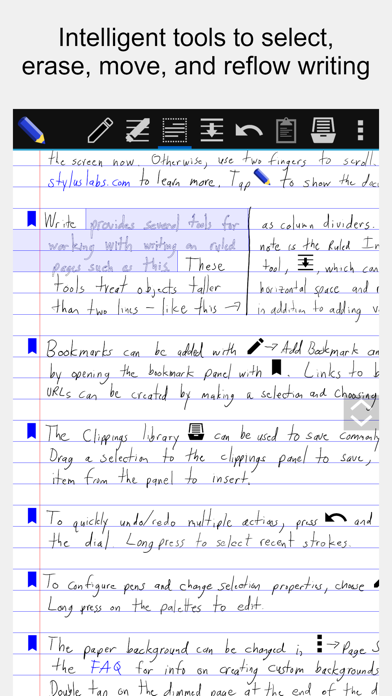 Intelligent tools to select,
erase, move, and reflow writing
the screen now. Otherwise, use two fingers to scroll.
styluslabs.com to learn more. Tap to show the
Write provides several tools for
working with writing on ruled
pages such as this. These
tools treat objects taller
than two lines - like this →
as column dividers.
note is the Ruled In
tool, , which can
horizontal space and
in addition to adding
Bookmarks can be added with → Add Bookmark
by opening the bookmark panel with . Links to
URLs can be created by making a selection and choosing
The Clippings library can be used to save commonly
Drag a selection to the clippings panel to save,
item from the panel to insert.
To quickly undo/redo multiple actions, press and
the dial. Long press to select recent strokes.
To configure pens and change selection properties, choose
Long press on the palettes to edit.
The paper background can be changed in → Page S
the FAQ for info on creating custom backgrounds
Double tap on the dimmed page at the end of the